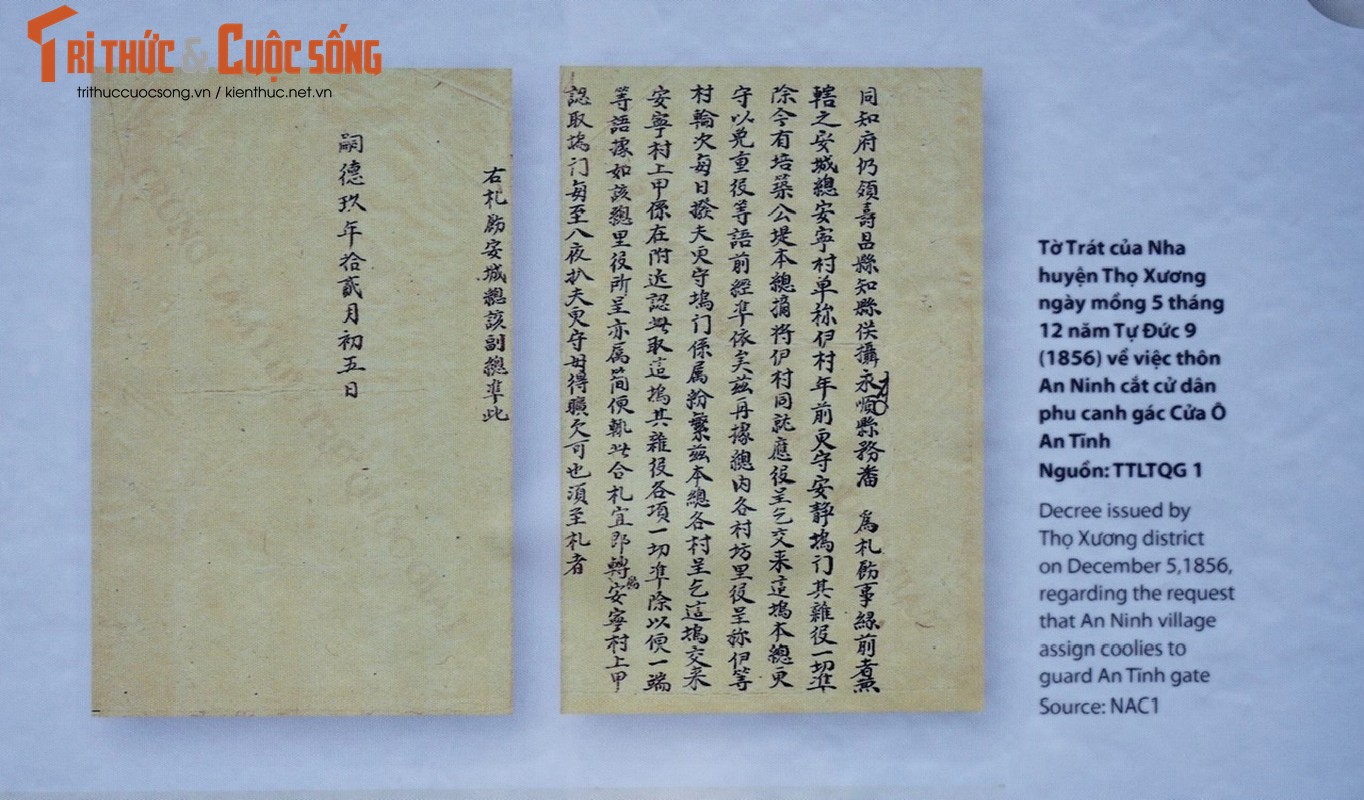 TRI THỨC & CUỘC SỐNG
trithuccuocsong.vn / kienthuc.net.vn
同知府仍領壽昌縣知縣侯攝永順縣務潘 為札飭事緣前煮
轄之安城總安寧村单称伊村年前更守安靜塢门其雜役一切準
除今有培築公堤本總摘將伊村同就應役呈乞交来這塢本總更
守以免重役等語前經準依矣茲再據總内各村坊里役呈称伊等
村輪次每日撥夫更守塢门係属紛繁茲本總各村呈乞這塢交来
安寧村上甲係在附近認取這塢其雜役各項一切準除以便一端
等語據如該總里役所呈亦属简便輒此合札宜即轉飭安寧村上甲
認取塢门每至八夜扒夫更守毋得曠欠可也須至札者
右札飭安城總該副總準此
嗣德玖年拾貳月初五日
Tờ Trát của Nha
huyện Thọ Xương
ngày mồng 5 tháng
12 năm Tự Đức 9
(1856) về việc thôn
An Ninh cắt cử dân
phu canh gác Cửa Ô
An Tĩnh
Nguồn: TTLTQG 1
Decree issued by
Thọ Xương district
on December 5,1856,
regarding the request
that An Ninh village
assign coolies to
guard An Tĩnh gate
Source: NAC1